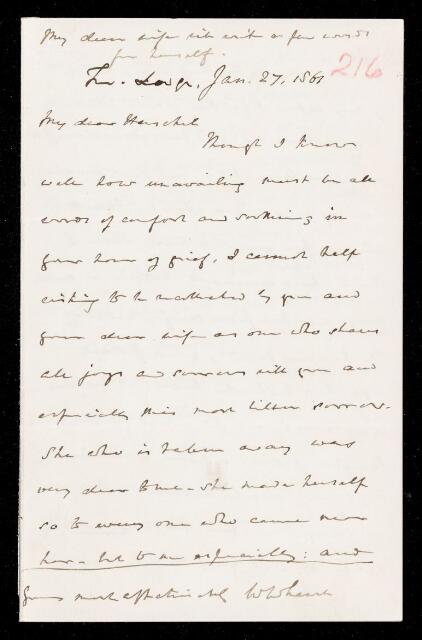 My dear wife will write a few words
for herself.
216
Tr. Lodge, Jan. 27, 1861
My dear Herschel
Though I know
well how unavailing must be all
words of comfort and soothing in
your hour of grief, I cannot help
wishing to be recollected by you and
your dear wife as one who shares
all joys and sorrows with you and
especially this most bitter sorrow.
She who is taken away was
very dear to me - She made herself
so to every one who came near
her - but to me especially: and
yours most affectionately W Whewell